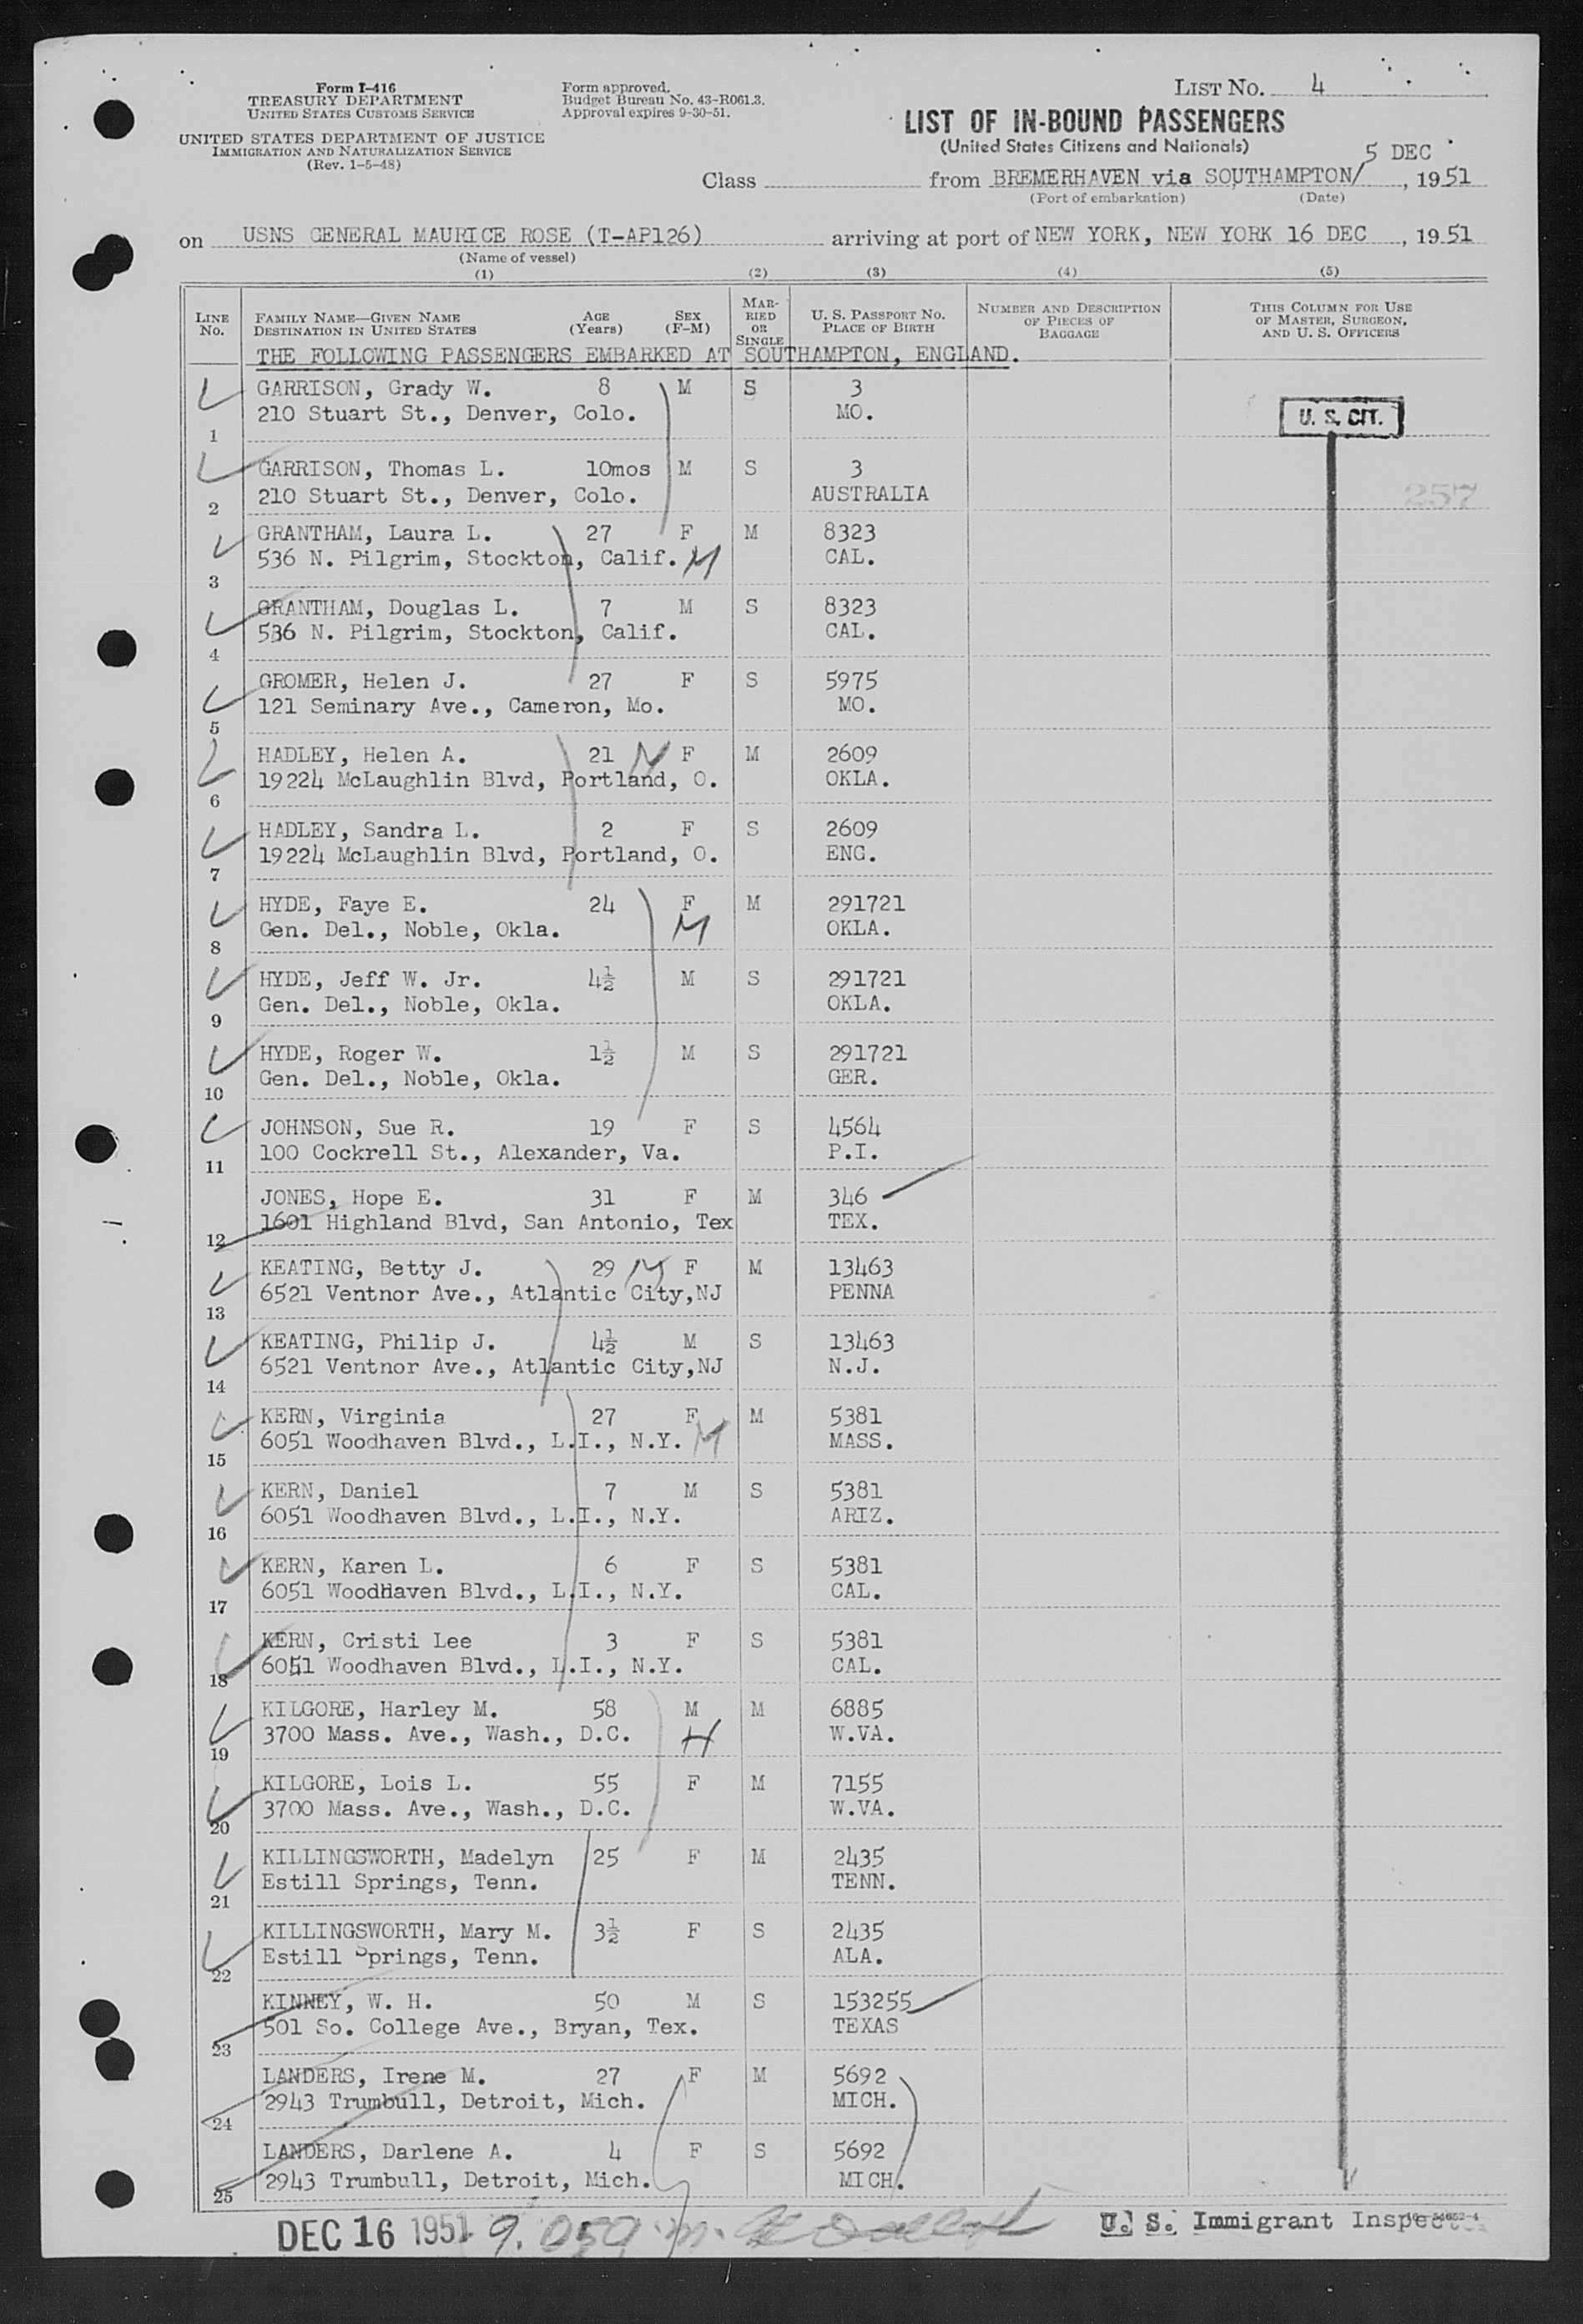 Form I-416
TREASURY DEPARTMENT
UNITED STATES CUSTOMS SERVICE
UNITED STATES DEPARTMENT OF JUSTICE
IMMIGRATION AND NATURALIZATION SERVICE
(Rev. 1-5-48)
Form approved.
Budget Bureau No. 43-R061.3.
Approval expires 9-30-51.
LIST NO. 4
LIST OF IN-BOUND PASSENGERS
(United States Citizens and Nationals)
Class from BREMERHAVEN via SOUTHAMPTON/ 5 DEC, 1951
(Port of embarkation) (Date)
on USNS GENERAL MAURICE ROSE (T-AP126) arriving at port of NEW YORK, NEW YORK 16 DEC, 1951
(Name of vessel)
(1) (2) (3) (4) (5)
LINE NO. FAMILY NAME—GIVEN NAME DESTINATION IN UNITED STATES AGE (Years) SEX (F-M) MARRIED OR SINGLE U. S. PASSPORT NO. PLACE OF BIRTH NUMBER AND DESCRIPTION OF PIECES OF BAGGAGE THIS COLUMN FOR USE OF MASTER, SURGEON, AND U. S. OFFICERS
THE FOLLOWING PASSENGERS EMBARKED AT SOUTHAMPTON, ENGLAND.
GARRISON, Grady W. 8 M S 3
210 Stuart St., Denver, Colo. MO. U. S. CIT.
1
GARRISON, Thomas L. 10mos M S 3
210 Stuart St., Denver, Colo. AUSTRALIA 257
2
GRANTHAM, Laura L. 27 F M 8323
536 N. Pilgrim, Stockton, Calif. M CAL.
3
GRANTHAM, Douglas L. 7 M S 8323
536 N. Pilgrim, Stockton, Calif. CAL.
4
GROMER, Helen J. 27 F S 5975
121 Seminary Ave., Cameron, Mo. MO.
5
HADLEY, Helen A. 21 F M 2609
19224 McLaughlin Blvd, Portland, O. OKLA.
6
HADLEY, Sandra L. 2 F S 2609
19224 McLaughlin Blvd, Portland, O. ENG.
7
HYDE, Faye E. 24 F M 291721
Gen. Del., Noble, Okla. M OKLA.
8
HYDE, Jeff W. Jr. 4½ M S 291721
Gen. Del., Noble, Okla. OKLA.
9
HYDE, Roger W. 1½ M S 291721
Gen. Del., Noble, Okla. GER.
10
JOHNSON, Sue R. 19 F S 4564
100 Cockrell St., Alexander, Va. P.I.
11
JONES, Hope E. 31 F M 346
1601 Highland Blvd, San Antonio, Tex TEX.
12
KEATING, Betty J. 29 M F M 13463
6521 Ventnor Ave., Atlantic City,NJ PENNA
13
KEATING, Philip J. 4½ M S 13463
6521 Ventnor Ave., Atlantic City,NJ N.J.
14
KERN, Virginia 27 F M 5381
6051 Woodhaven Blvd., L.I., N.Y. M MASS.
15
KERN, Daniel 7 M S 5381
6051 Woodhaven Blvd., L.I., N.Y. ARIZ.
16
KERN, Karen L. 6 F S 5381
6051 Woodhaven Blvd., L.I., N.Y. CAL.
17
KERN, Cristi Lee 3 F S 5381
6051 Woodhaven Blvd., L.I., N.Y. CAL.
18
KILGORE, Harley M. 58 M M 6885
3700 Mass. Ave., Wash., D.C. H W.VA.
19
KILGORE, Lois L. 55 F M 7155
3700 Mass. Ave., Wash., D.C. W.VA.
20
KILLINGSWORTH, Madelyn 25 F M 2435
Estill Springs, Tenn. TENN.
21
KILLINGSWORTH, Mary M. 3½ F S 2435
Estill Springs, Tenn. ALA.
22
KINNEY, W. H. 50 M S 153255
501 So. College Ave., Bryan, Tex. TEXAS
23
LANDERS, Irene M. 27 F M 5692
2943 Trumbull, Detroit, Mich. MICH.
24
LANDERS, Darlene A. 4 F S 5692
2943 Trumbull, Detroit, Mich. MICH.
25
DEC 16 1951 U. S. Immigrant Inspector